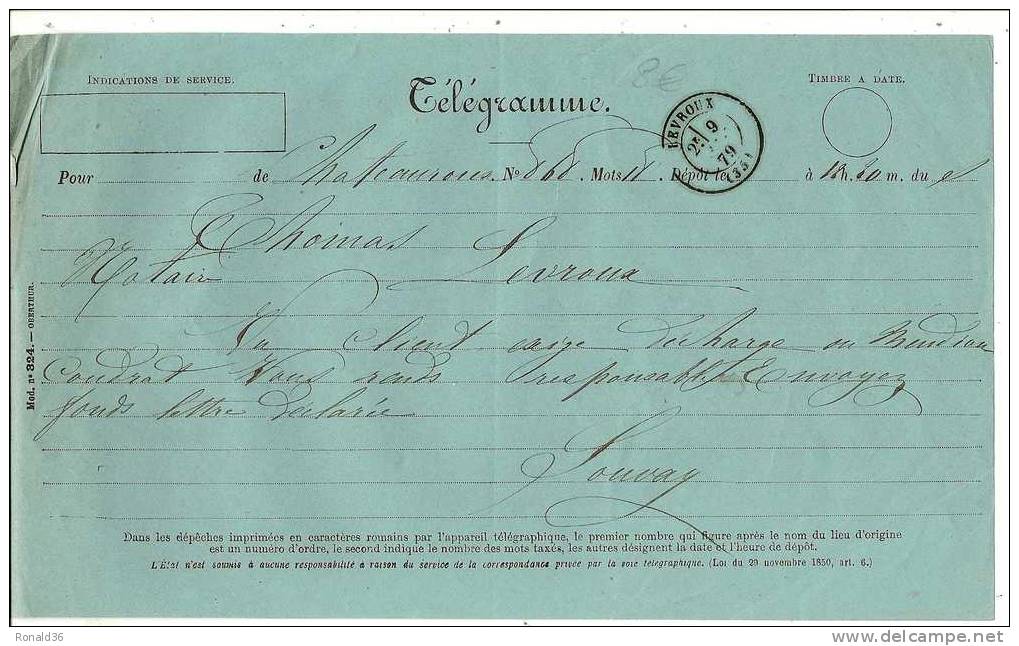 INDICATIONS DE SERVICE.
TIMBRE A DATE.
8€
Télégramme.
LEVROUX
25 9 79
(35)
Pour de Chateauroux N° 868 Mots 18 Dépôt le à 12h. 20 m. du s
Thomas
Notaire Levroux
Mod. n° 324. — OBERTHUR.
client exige decharge ou
Vous rends responsable Envoyez
fonds lettre declarée
Louvay
Dans les dépêches imprimées en caractères romains par l'appareil télégraphique, le premier nombre qui figure après le nom du lieu d'origine
est un numéro d'ordre, le second indique le nombre des mots taxés, les autres désignent la date et l'heure de dépôt.
L'État n'est soumis à aucune responsabilité à raison du service de la correspondance privée par la voie télégraphique. (Loi du 29 novembre 1850, art. 6.)
Ronald36
delcampe.net